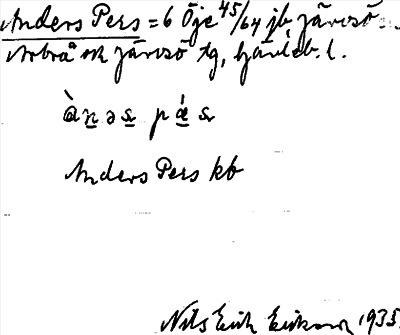 Anders Pers = 6 Öje 45/64 jb Järvsö.
Arbrå ok Järvsö tg, Gävleb. l.
ànəs pás
Anders Pers kb
Nils Erik Erikson 1935